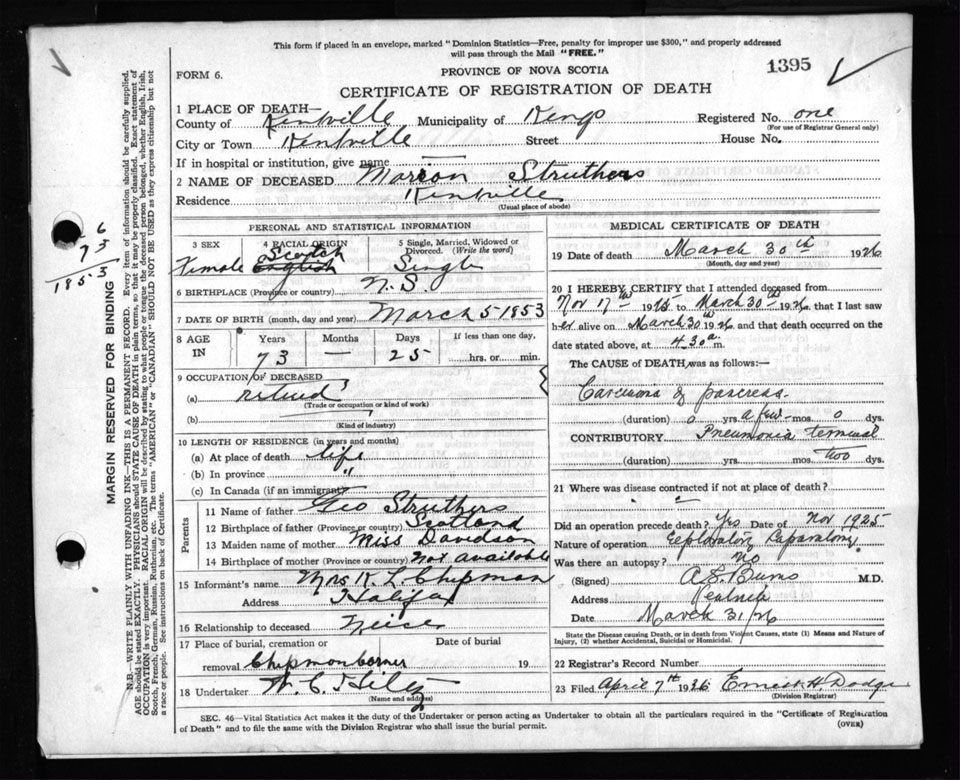 This form if placed in an envelope, marked "Dominion Statistics—Free, penalty for improper use $300," and properly addressed
will pass through the Mail "FREE."
FORM 6.
PROVINCE OF NOVA SCOTIA
1395
CERTIFICATE OF REGISTRATION OF DEATH
1 PLACE OF DEATH—
County of Kentville Municipality of Kings Registered No. one
(For use of Registrar General only)
City or Town Kentville Street House No.
If in hospital or institution, give name —
2 NAME OF DECEASED Marion Struthers
Residence Kentville
(Usual place of abode)
PERSONAL AND STATISTICAL INFORMATION
3 SEX 4 RACIAL ORIGIN 5 Single, Married, Widowed or Divorced. (Write the word)
Female Scotch English Single
6 BIRTHPLACE (Province or country) N.S.
7 DATE OF BIRTH (month, day and year) March 5 1853
8 AGE IN Years Months Days If less than one day,
73 — 25 hrs. or min.
9 OCCUPATION OF DECEASED
(a) retired
(Trade or occupation or kind of work)
(b)
(Kind of industry)
10 LENGTH OF RESIDENCE (in years and months)
(a) At place of death life
(b) In province "
(c) In Canada (if an immigrant)
Parents
11 Name of father Geo Struthers
12 Birthplace of father (Province or country) Scotland
13 Maiden name of mother Miss Davidson
14 Birthplace of mother (Province or country) Not available
15 Informant's name Mrs R. L. Chipman
Address Halifax
16 Relationship to deceased Neice
17 Place of burial, cremation or Date of burial
removal Chipman corner 19
18 Undertaker W. C. Hiltz
(Name and address)
MEDICAL CERTIFICATE OF DEATH
19 Date of death March 30th 1926
(Month, day and year)
20 I HEREBY CERTIFY that I attended deceased from
Nov 17th 1925 to March 30th 1926 that I last saw
her alive on March 30th 1926 and that death occurred on the
date stated above, at 4.30 a. m.
The CAUSE of DEATH was as follows:—
Carcinoma of pancreas.
(duration) 0 yrs. a few mos. 0 dys.
CONTRIBUTORY Pneumonia terminal
(duration) yrs. mos. two dys.
21 Where was disease contracted if not at place of death?
Did an operation precede death? Yes Date of Nov 1925
Nature of operation Exploratory Laparatomy
Was there an autopsy? No
(Signed) A. S. Burns M.D.
Address
Date March 31/26
State the Disease causing Death, or in death from Violent Causes, state (1) Means and Nature of
Injury, (2) whether Accidental, Suicidal or Homicidal.
22 Registrar's Record Number
23 Filed April 7th 1926 Ernest H. Dodge
(Division Registrar)
SEC. 46—Vital Statistics Act makes it the duty of the Undertaker or person acting as Undertaker to obtain all the particulars required in the "Certificate of Registration
of Death" and to file the same with the Division Registrar who shall issue the burial permit.
(OVER)
MARGIN RESERVED FOR BINDING
N.B.—WRITE PLAINLY WITH UNFADING INK—THIS IS A PERMANENT RECORD. Every item of information should be carefully supplied.
AGE should be stated EXACTLY. PHYSICIANS should STATE CAUSE OF DEATH in plain terms, so that it may be properly classified. Exact statement of
OCCUPATION is very important. RACIAL ORIGIN will be described by stating to what people or tongue the deceased person belonged, whether English, Irish,
Scotch, French, German, Russian, Ruthenian, etc. The terms "AMERICAN" or "CANADIAN" SHOULD NOT BE USED as they express citizenship but not
a race or people. See instructions on back of Certificate.
6
73
1853